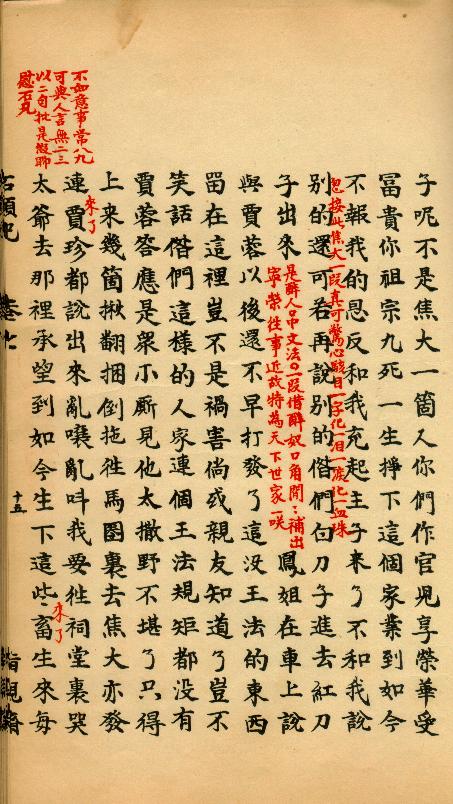 不如意事常八九
可與人言無二三
以二句批是叚聊
慰石兄
子呢不是焦大一箇人你們作官児享榮華受
冨貴你祖宗九死一生掙下這個家業到如今
不報我的恩反和我充起主子来了不和我說
别的還可若再說别的偺們白刀子進去紅刀
忽接此焦大一段真可驚心駭目一字化一泪一泪化一血珠
子出来
是醉人口中文法〇一段借醉奴口角閒〻補出
寧榮徃事近故特為天下世家一咲
鳳姐在車上說
與賈蓉以後還不早打發了這没王法的東西
畄在這裡豈不是禍害倘或親友知道了豈不
笑話偺們這樣的人家連個王法規矩都没有
賈蓉答應是衆小厮見他太撒野不堪了只得
上来幾箇揪翻捆倒拖徃馬圏裏去焦大亦發
連賈珍都說出来亂嚷亂呌我要徃祠堂裏哭
来了
太爺去那裡承望到如今生下這些畜生来每
来了
石頭記
卷七
十五
脂硯齋